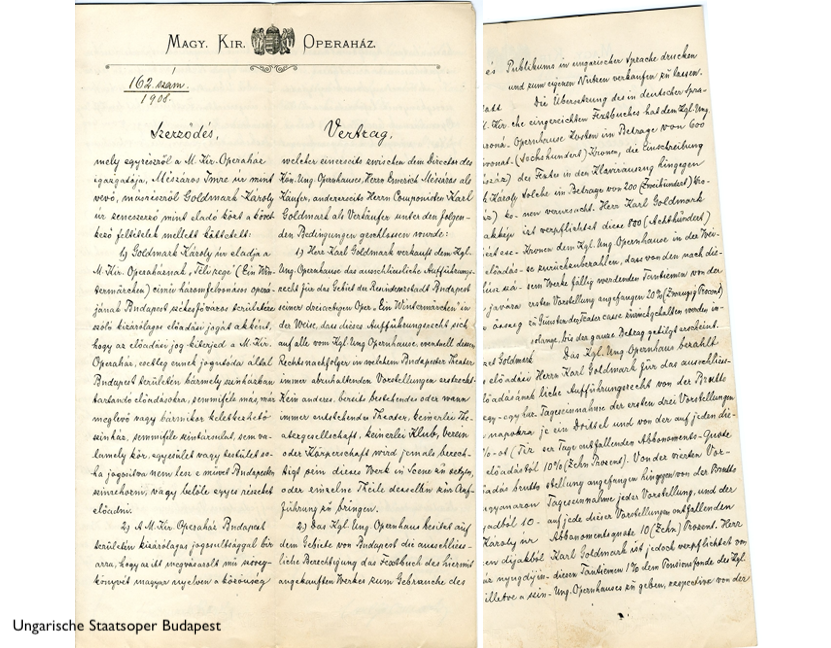 MAGY. KIR. OPERAHÁZ.
162. szám.
1908.
Szerződés,
mely egyrészről a M. Kir. Operaház
igazgatója, Mészáros Imre úr mint
vevő, másrészről Goldmark Károly
úr zeneszerző mint eladó közt a követ-
kező feltételek mellett köttetett:
1) Goldmark Károly úr eladja a
M. Kir. Operaháznak „Téli rege" (Ein Win-
termärchen) című háromfelvonásos operá-
jának Budapest székesfőváros területére
szóló kizárólagos előadási jogát akként,
hogy az előadási jog kiterjed a M. Kir.
Operaház, esetleg ennek jogutóda által
Budapest területén bármely színházban
tartandó előadásokra, semmiféle más, már
meglevő vagy bármikor keletkezhető
színház, semmiféle színtársulat, sem va-
lamely kör, egyesület vagy testület so-
ha jogosítva nem lesz e művet Budapesten
színrehozni, vagy belőle egyes részeket
előadni.
2) A M. Kir. Operaház Budapest
területén kizárólagos jogosultsággal bír
arra, hogy az itt megvásárolt mű szöveg-
könyvét magyar nyelven a közönség
Vertrag,
welcher einerseits zwischen dem Director des
Kön. Ung. Opernhauses, Herrn Emerich Mészáros als
Käufer, anderseits Herrn Componisten Karl
Goldmark als Verkäufer unter den folgen-
den Bedingungen geschlossen wurde:
1) Herr Karl Goldmark verkauft dem Kgl.
Ung. Opernhause das ausschliessliche Aufführungs-
recht für das Gebiet der Residenzstadt Budapest
seiner dreiaktigen Oper „Ein Wintermärchen" in
der Weise, dass dieses Aufführungsrecht sich
auf alle vom Kgl. Ung. Opernhause, eventuell dessen
Rechtsnachfolger in welchem Budapester Theater
immer abzuhaltenden Vorstellungen erstreckt.
Kein anderes, bereits bestehendes oder wann
immer entstehendes Theater, keinerlei The-
atergesellschaft, keinerlei Klub, Verein
oder Körperschaft wird jemals berech-
tigt sein dieses Werk in Scene zu setzen,
oder einzelne Theile desselben zur Auf-
führung zu bringen.
2) Das Kgl. Ung. Opernhaus besitzt auf
dem Gebiete von Budapest die ausschliess-
liche Berechtigung das Textbuch des hiermit
angekauften Werkes zum Gebrauche des
Publikums in ungarischer Sprache drucken
und zum eigenen Nutzen verkaufen zu lassen.
Die Übersetzung des in deutscher Spra-
che eingereichten Textbuches hat dem Kgl. Ung.
Opernhause Kosten im Betrage von 600
(Sechshundert) Kronen, die Einschreibung
des Textes in den Klavierauszug hingegen
solche im Betrage von 200 (Zweihundert) Kro-
nen verursacht. Herr Karl Goldmark
ist verpflichtet diese 800 (Achthundert)
Kronen dem Kgl. Ung. Opernhause in der Wei-
se zurückzubezahlen, dass von den nach die-
sem Werke fällig werdenden Tantiemen von der
ersten Vorstellung angefangen 20% (Zwanzig Procent)
zu Gunsten der Teatercasse zurückgehalten werden in-
solange, bis der ganze Betrag getilgt erscheint.
Das Kgl. Ung. Opernhaus bezahlt
Herrn Karl Goldmark für das ausschliess-
liche Aufführungsrecht von der Brutto
Tageseinnahme der ersten drei Vorstellungen
je ein Drittel und von der auf jeden die-
ser Tage entfallenden Abbonements-Quote
10% (Zehn Prozent). Von der vierten Vor-
stellung angefangen hingegen von der Brutto
Tageseinnahme jeder Vorstellung, und der
auf jede dieser Vorstellungen entfallenden
Abbonementsquote 10 (Zehn) Prozent. Herr
Karl Goldmark ist jedoch verpflichtet von
diesen Tantiemen 1% dem Pensionsfonde des Kgl.
Ung. Opernhauses zu geben, respective von der
Ungarische Staatsoper Budapest